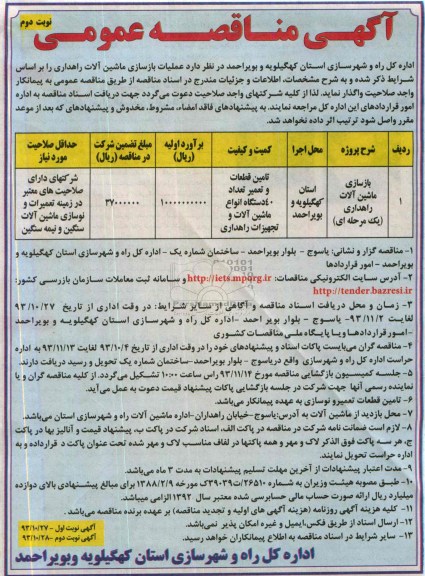 نوبت دوم
آگهی مناقصه عمومی
اداره کل راه و شهرسازی استان کهگیلویه و بویراحمد در نظر دارد عملیات بازسازی ماشین آلات راهداری را بر اساس
شرایط ذکر شده و به شرح مشخصات، اطلاعات و جزئیات مندرج در اسناد مناقصه از طریق مناقصه عمومی به پیمانکار
واجد صلاحیت واگذار نماید. لذا از کلیه شرکتهای واجد صلاحیت دعوت می‌گردد جهت دریافت اسناد مناقصه به اداره
امور قراردادهای این اداره کل مراجعه نمایند. به پیشنهادهای فاقد امضاء، مشروط، مخدوش و پیشنهادهای که بعد از موعد
مقرر واصل شود ترتیب اثر داده نخواهد شد.
ردیف شرح پروژه محل اجرا کمیت و کیفیت برآورد اولیه (ریال) مبلغ تضمین شرکت در مناقصه (ریال) حداقل صلاحیت مورد نیاز
۱ بازسازی ماشین آلات راهداری (یک مرحله ای) استان کهگیلویه و بویراحمد تامین قطعات و تعمیر تعداد ۴۰دستگاه انواع ماشین آلات و تجهیزات راهداری ۱۰۰۰۰۰۰۰۰۰۰ ۳۷۰۰۰۰۰۰ شرکتهای دارای صلاحیت های معتبر در زمینه تعمیرات و نوسازی ماشین آلات سنگین و نیمه سنگین
۱- مناقصه گزار و نشانی: یاسوج - بلوار بویراحمد - ساختمان شماره یک - اداره کل راه و شهرسازی استان کهگیلویه و
بویراحمد - امور قراردادها
۲- آدرس سایت الکترونیکی مناقصات: http://iets.mporg.ir و سامانه ثبت معاملات سازمان بازرسی کشور:
http://tender.bazresi.ir
۳- زمان و محل دریافت اسناد مناقصه و آگاهی از سایر شرایط: در وقت اداری از تاریخ ۹۳/۱۰/۲۷
لغایت ۹۳/۱۱/۲- یاسوج - بلوار بویراحمد -اداره کل راه و شهرسازی استان کهگیلویه و بویراحمد
-امور قراردادها و یا پایگاه ملی مناقصات کشوری
۴- مناقصه گران می‌بایست پاکات اسناد و پیشنهادهای خود را در وقت اداری از تاریخ ۹۳/۱۰/۴ لغایت ۹۳/۱۱/۱۳ به اداره
حراست اداره کل راه و شهرسازی واقع در یاسوج - بلوار بویراحمد-ساختمان شماره یک تحویل و رسید دریافت دارند.
۵- جلسه کمیسیون بازگشایی مناقصه مورخ ۹۳/۱۱/۱۴ راس ساعت ۱۰:۰۰ تشکیل می‌گردد. از کلیه مناقصه گران و یا
نماینده رسمی آنها جهت شرکت در جلسه بازگشایی پاکات پیشنهاد قیمت دعوت به عمل می‌آید.
۶- تامین قطعات تعمیرو نوسازی به عهده پیمانکار می‌باشد.
۷- محل بازدید از ماشین آلات به آدرس:یاسوج-خیابان راهداران-اداره ماشین آلات راه و شهرسازی استان می‌باشد.
۸- لازم است ضمانت نامه شرکت در مناقصه در پاکت الف، اسناد شرکت در پاکت ب، پیشنهاد قیمت و آنالیز بها در پاکت
ج، هر سه پاکت فوق الذکر لاک و مهر و همه پاکتها در لفاف مناسب لاک و مهر شده تحت عنوان پاکت د قرارداده و به
اداره حراست تحویل نمایند.
۹- مدت اعتبار پیشنهادات از آخرین مهلت تسلیم پیشنهادات به مدت ۳ ماه می‌باشد.
۱۰- طبق مصوبه هیئت وزیران به شماره ۳۹۰۳۹/ت۲۶۵۱۰ک مورخه ۱۳۸۸/۲/۹ برای مبالغ پیشنهادی بالای دوازده
میلیارد ریال ارائه صورت حساب مالی حسابرسی شده معتبر سال ۱۳۹۲ الزامی میباشد.
۱۱- کلیه هزینه آگهی روزنامه (هزینه آگهی های اولیه و تجدید مناقصه) بر عهده برنده مناقصه می‌باشد.
۱۲- ارسال اسناد از طریق فکس،ایمیل و غیره امکان پذیر نمی‌باشد.
۱۳- سایر شرایط در اسناد مناقصه به اطلاع پیمانکاران خواهد رسید.
آگهی نوبت اول - ۹۳/۱۰/۲۷
آگهی نوبت دوم -۹۳/۱۰/۲۸
اداره کل راه و شهرسازی استان کهگیلویه وبویراحمد